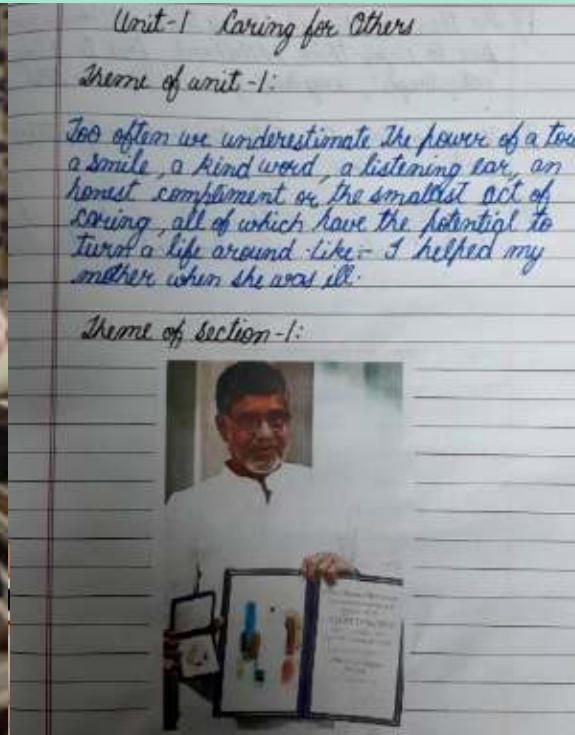 Unit-1 Caring for Others
Theme of unit-1:
Too often we underestimate the power of a tou
a smile, a kind word, a listening ear, an
honest compliment or the smallest act of
caring, all of which have the potential to
turn a life around. Like:- I helped my
mother when she was ill.
Theme of section-1: